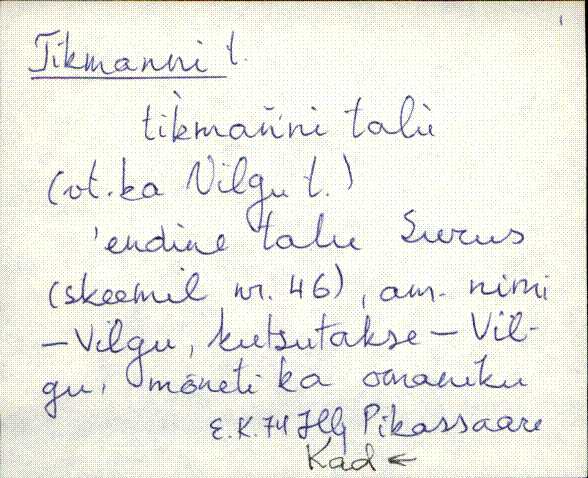 Tikmanni t.
tìkmańni talù
(vt. ka Vilgu t.)
'endine talu Surus
(skeemil nr. 46), am. nimi
– Vilgu, kutsutakse – Vil-
gu, mõneti ka omaniku
E.K. 74 Pikassaare
Kad ←